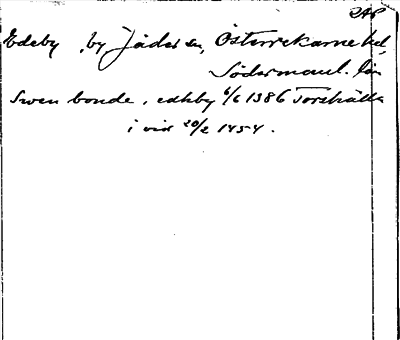 RAP
Edeby, by Jäders sn, Österrekarne hd,
Södermanl. län
Swen bonde, edhby 6/6 1386 Torshälla
i vid 20/2 1454.